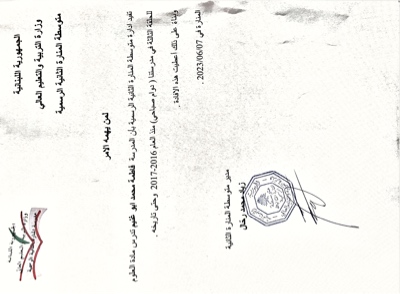 الجمهورية اللبنانية
وزارة التربية والتعليم العالي
متوسطة المنارة الثانية الرسمية
لمن يهمه الامر
تفيد ادارة متوسطة المنارة الثانية الرسمية بأن المدرسة فاطمة محمد ابو غنيم تدرس مادة العلوم
للحلقة الثالثة في مدرستنا ( دوام صباحي) منذ العام 2016-2017 وحتى تاريخه .
وبناء على ذلك أعطيت هذه الافادة .
المنارة في 2023/06/07 .
مدير متوسطة المنارة الثانية
زياد محمد رحال